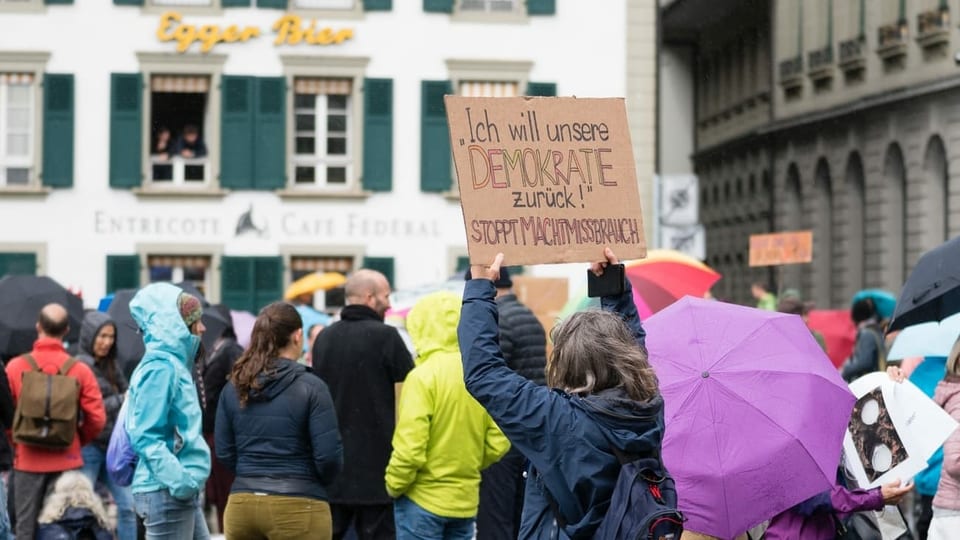 Egger Bier
ENTRECOTE CAFÉ FÉDÉRAL
„Ich will unsere
DEMOKRATE
zurück!"
STOPPT MACHTMISSBRAUCH